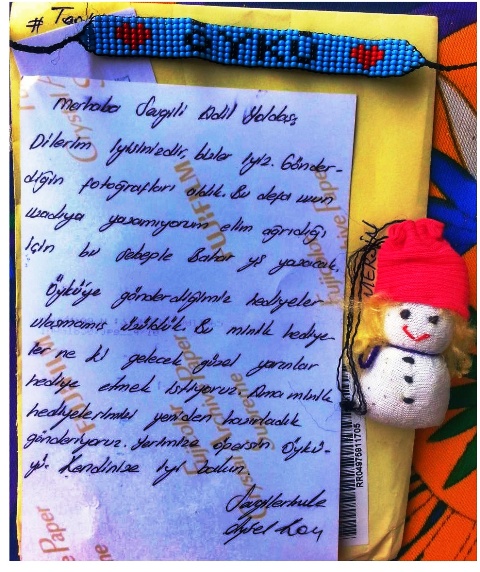 ÖYKÜ
Merhaba Sevgili Adil Yoldaş
Dilerim iyisinizdir, bizler iyiz. Gönder-
diğin fotoğrafları aldık. Bu defa uzun
uzadıya yazamıyorum elim ağrıdığı
için bu sebeple Bahar
Öykü'ye gönderdiğimiz hediyeler
ulaşmamış üzüldük. Bu minik hediye-
ler ne ki gelecek güzel yarınlar
hediye etmek istiyoruz. Ama minik
hediyelerimizi yeniden hazırladık
gönderiyoruz. Yerimize öpersin Öykü-
yü. Kendinize iyi bakın.
Sevgilerimle
MERSİN
RR04975811705
FUJIFILM
Crystal Archive Paper
Supreme